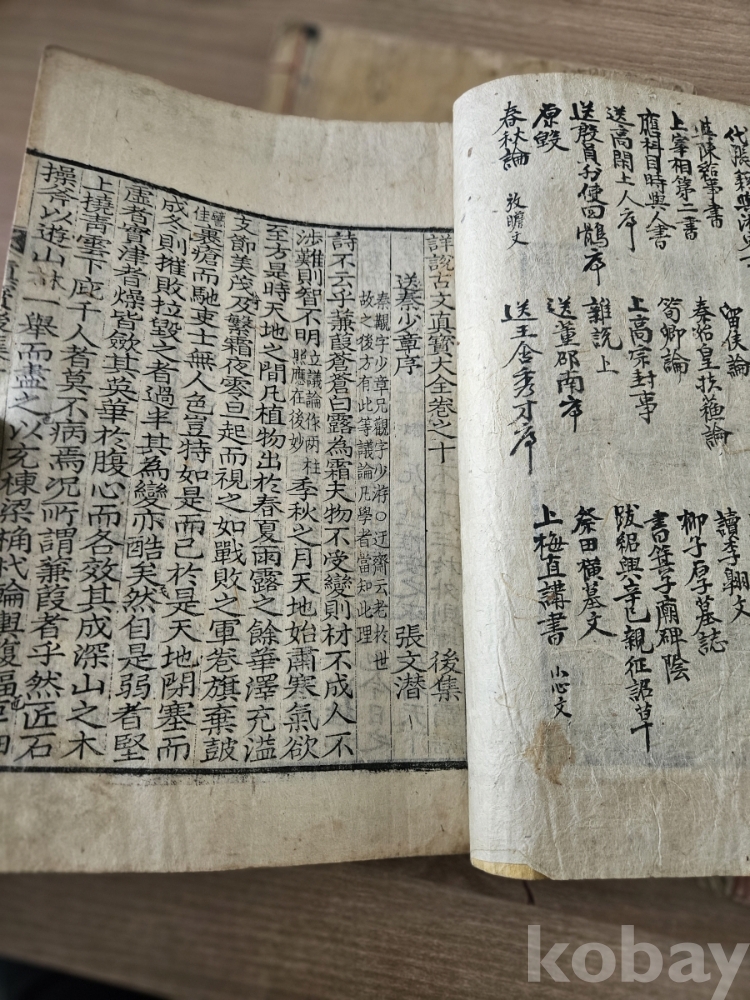 陳給事書
上宰相第二書
應科目時與人書
送高閑上人序
送殷員外使回鶻序
原毀
春秋論 放膽文
留侯論
秦始皇扶蘇論
荀卿論
上高宗封事
雜說上
送董邵南序
送王含秀才序
讀李翺文
柳子厚墓誌
書箕子廟碑陰
跋紹興辛巳親征詔草
祭田橫墓文
上梅直講書 小心文
詳說古文真寶大全卷之十 後集
送秦少章序 張文潛
秦覯字少章兄觀字少游○迂齋云老於世
故之後方有此等議論凡學者當知此理
詩不云乎蒹葭蒼蒼白露為霜夫物不受變則材不成人不
涉難則智不明立議論作兩柱照應在後妙季秋之月天地始肅寒氣欲
至方是時天地之間凡植物出於春夏雨露之餘華澤充溢
支節美茂及繁霜夜零旦起而視之如戰敗之軍卷旗棄鼓
譬佳裹瘡而馳吏士無人色豈特如是而已於是天地閉塞而
成冬則摧敗拉毀之者過半其為變亦酷矣然自是弱者堅
虛者實津者燥皆斂其英華於腹心而各效其成深山之木
上撓靑雲下庇千人者莫不病焉況所謂蒹葭者乎然匠石
操斧以遊山林一舉而盡之以充棟梁桷杙輪輿輹輻巨細
kobay